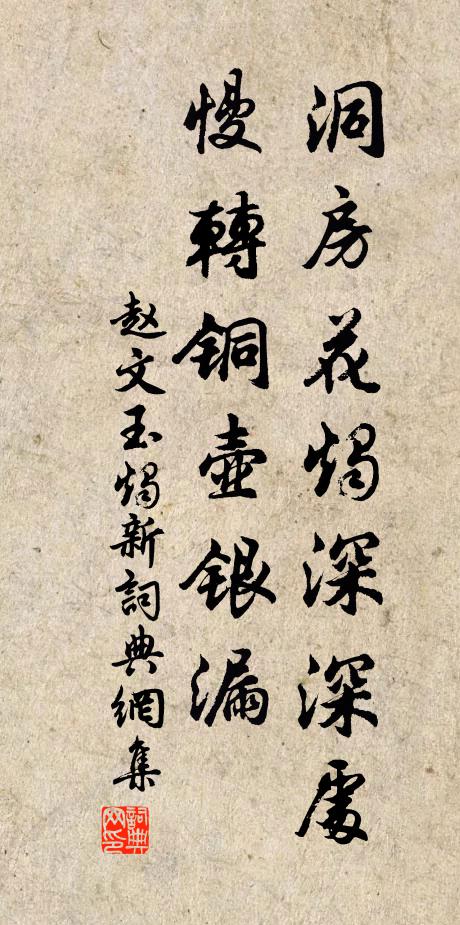 洞房花燭深深處
慢轉銅壺銀漏
赵文玉燭新詞典網集
詞典网印